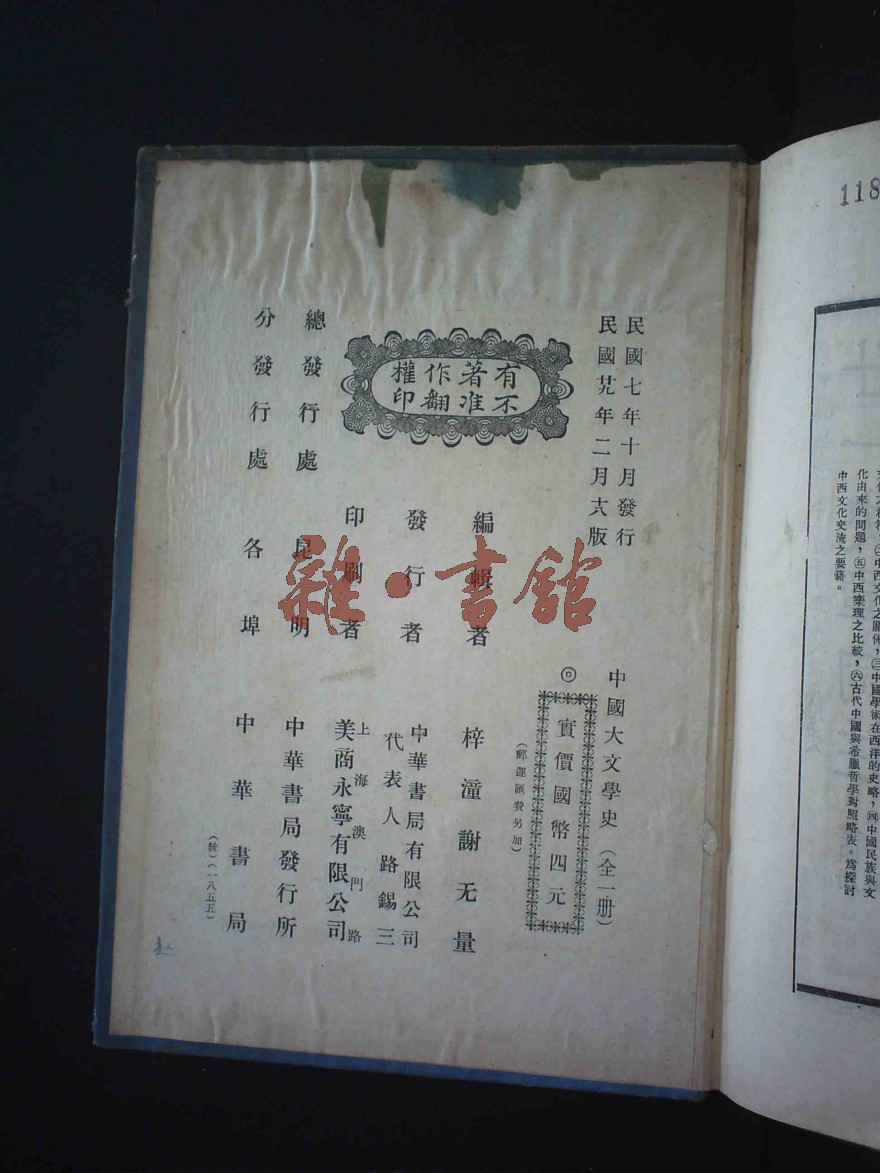 民國七年十月發行
民國廿九年二月六版
中國大文學史（全一册）
◎實價國幣四元
（郵運匯費另加）
有著作權
不准翻印
編輯者 梓潼謝无量
發行者 中華書局有限公司
代表人路錫三
印刷者 上海澳門路
美商永寧有限公司
總發行處 昆明 中華書局發行所
分發行處 各埠 中華書局
（統）（一八五五）
雜·書館
118
化由來的問題，㊄中西樂理之比較，㊅古代中國與希臘哲學對照略表。爲探討
中西文化交流之要籍。